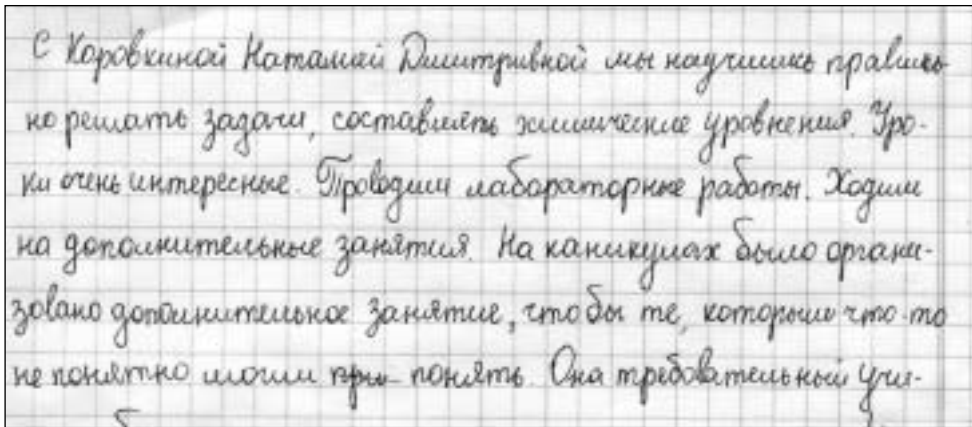 С Коровкиной Наталией Дмитривной мы научились правиль
но решать задачи, составлять химические уровнения. Уро-
ки очень интересные. Проводим лабораторные работы. Ходим
на дополнительные занятия. На каникулах было органи-
зовано дополнительное занятие, чтобы те, которым что-то
не понятно могли при понять. Она требовательный учи-